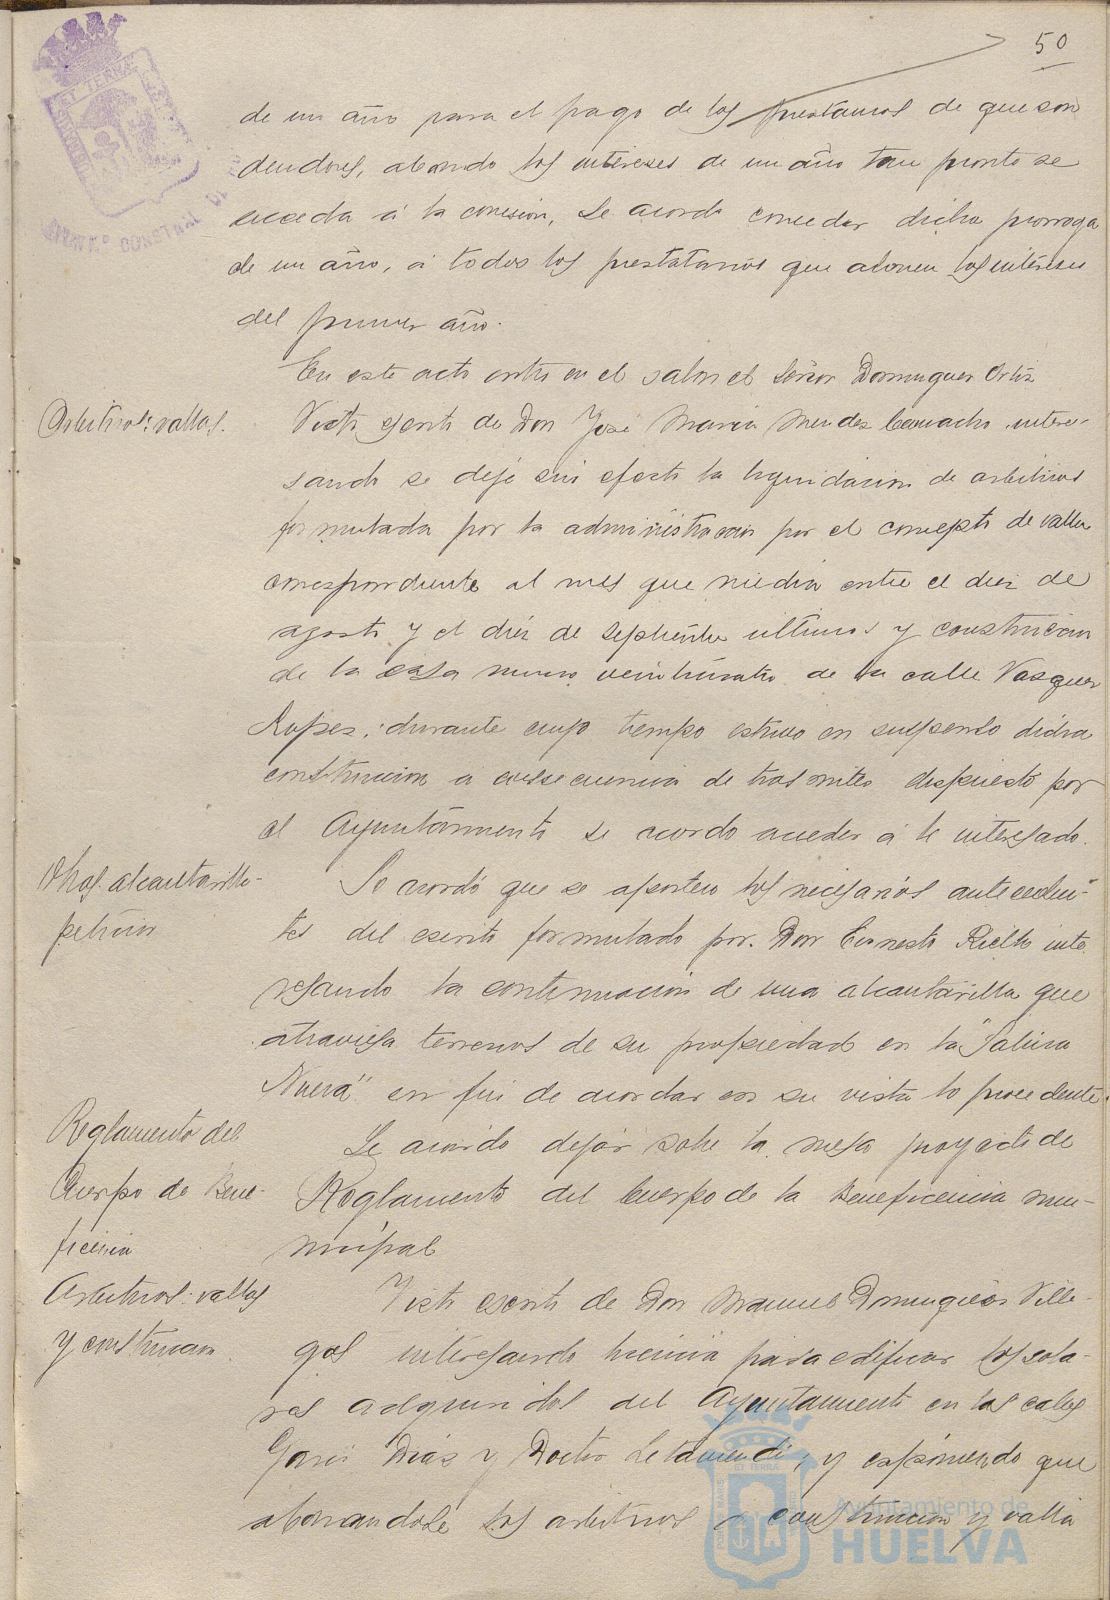 50
de un año para el pago de los prestamos de que son
deudores, abonando los intereses de un año tan pronto se
acceda á la concesion, se acordó conceder dicha prorroga
de un año, á todos los prestatarios que abonen los intereses
del primer año.
En este acto entró en el salon el Señor Dominguez Ortiz
Arbitrios: vallas.
Visto escrito de Don José Maria Mendez Camacho intere-
sando se deje sin efecto la liquidacion de arbitrios
formulada por la administracion por el concepto de valla
correspondiente al mes que media entre el diez de
agosto y el diez de septiembre ultimos y construccion
de la casa numero veinticuatro de la calle Vazquez
Lopez, durante cuyo tiempo estuvo en suspenso dicha
construccion a consecuencia de tramites dispuesto por
el Ayuntamiento se acordo acceder á lo interesado.
Obras alcantarilla-
peticion
Se acordó que se aporten los necesarios anteceden-
tes del escrito formulado por Don Ernesto Riello inte
resando la continuacion de una alcantarilla que
atraviesa terrenos de su propiedad en la "Salina
Nueva" en fin de acordar con su vista lo procedente.
Reglamento del
Cuerpo de Bene-
ficencia
Se acordó dejar sobre la mesa proyecto de
Reglamento del Cuerpo de la Beneficencia mu-
nicipal
Arbitrios: vallas
y construccion
Visto escrito de Don Manuel Dominguez Ville-
gas interesando licencia para edificar los sola-
res adquiridos del Ayuntamiento en las calles
Garci Diaz y Doctor Letamendi, y exponiendo que
abonandose los arbitrios construccion y valla
Ayuntamiento de
HUELVA